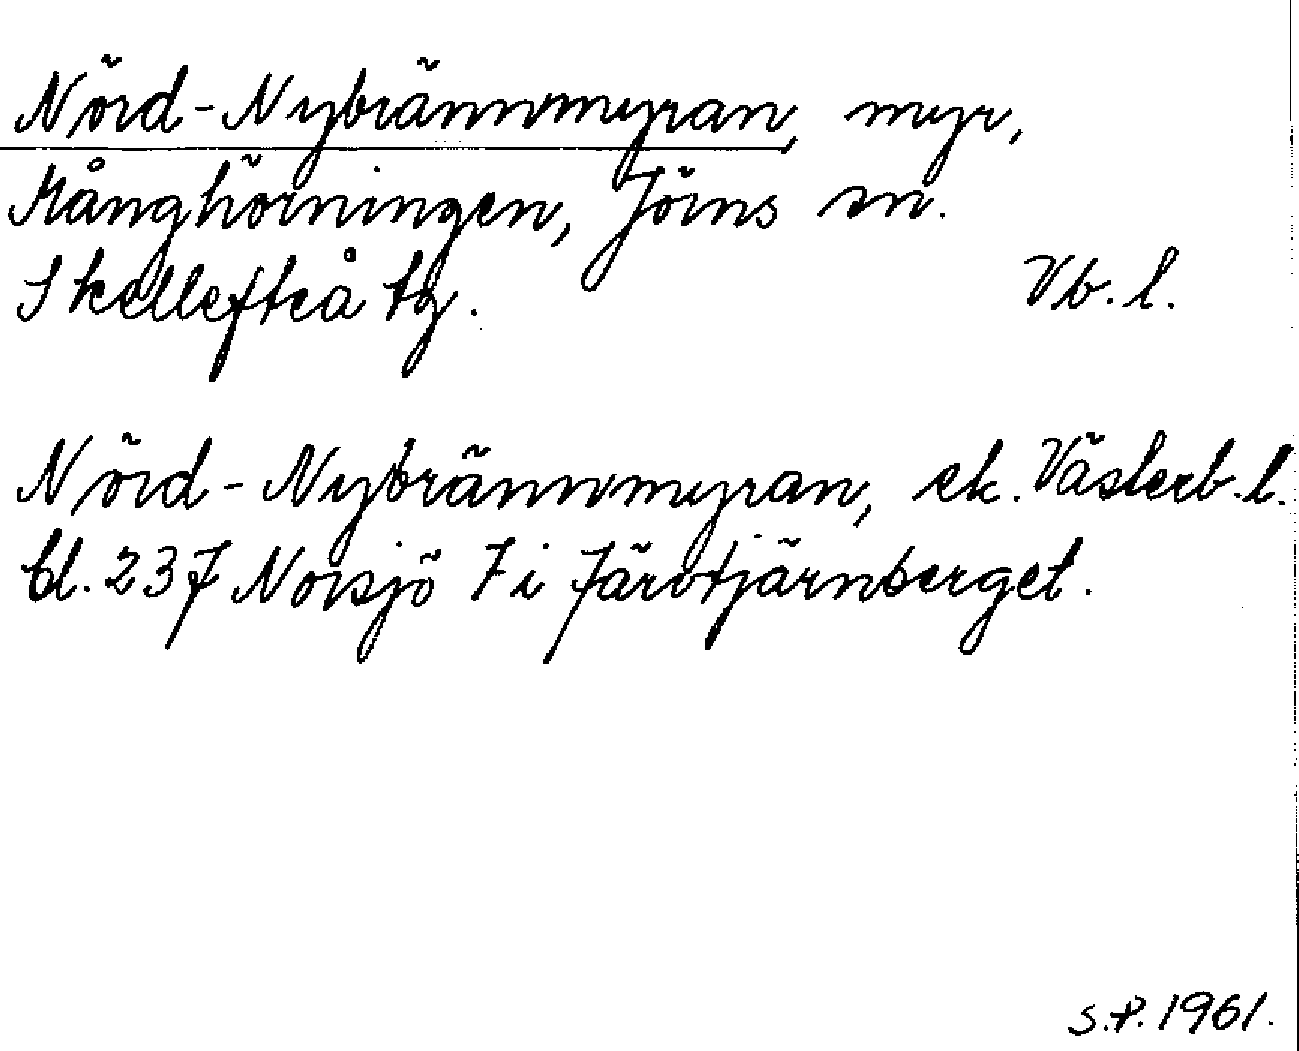 Nörd-Nybrännmyran, myr,
Månghörningen, Jörns sn.
Skellefteå tg. Vb. l.
Nörd-Nybrännmyran, ek. Västerb. l.
bl. 237 Norsjö 7 i Järvtjärnberget.
S.P. 1961.